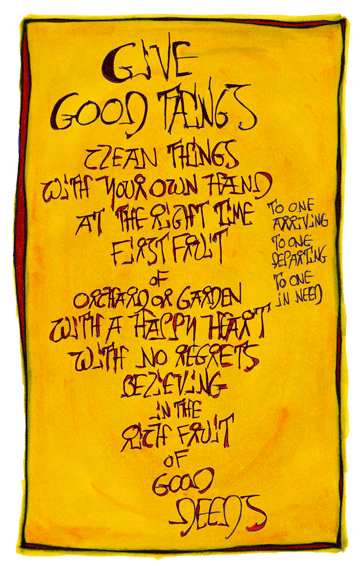 GIVE
GOOD THINGS
CLEAN THINGS
WITH YOUR OWN HAND
AT THE RIGHT TIME
FIRST FRUIT
OF
ORCHARD OR GARDEN
WITH A HAPPY HEART
WITH NO REGRETS
BELIEVING
IN THE
RICH FRUIT
OF
GOOD
DEEDS
TO ONE
ARRIVING
TO ONE
DEPARTING
TO ONE
IN NEED